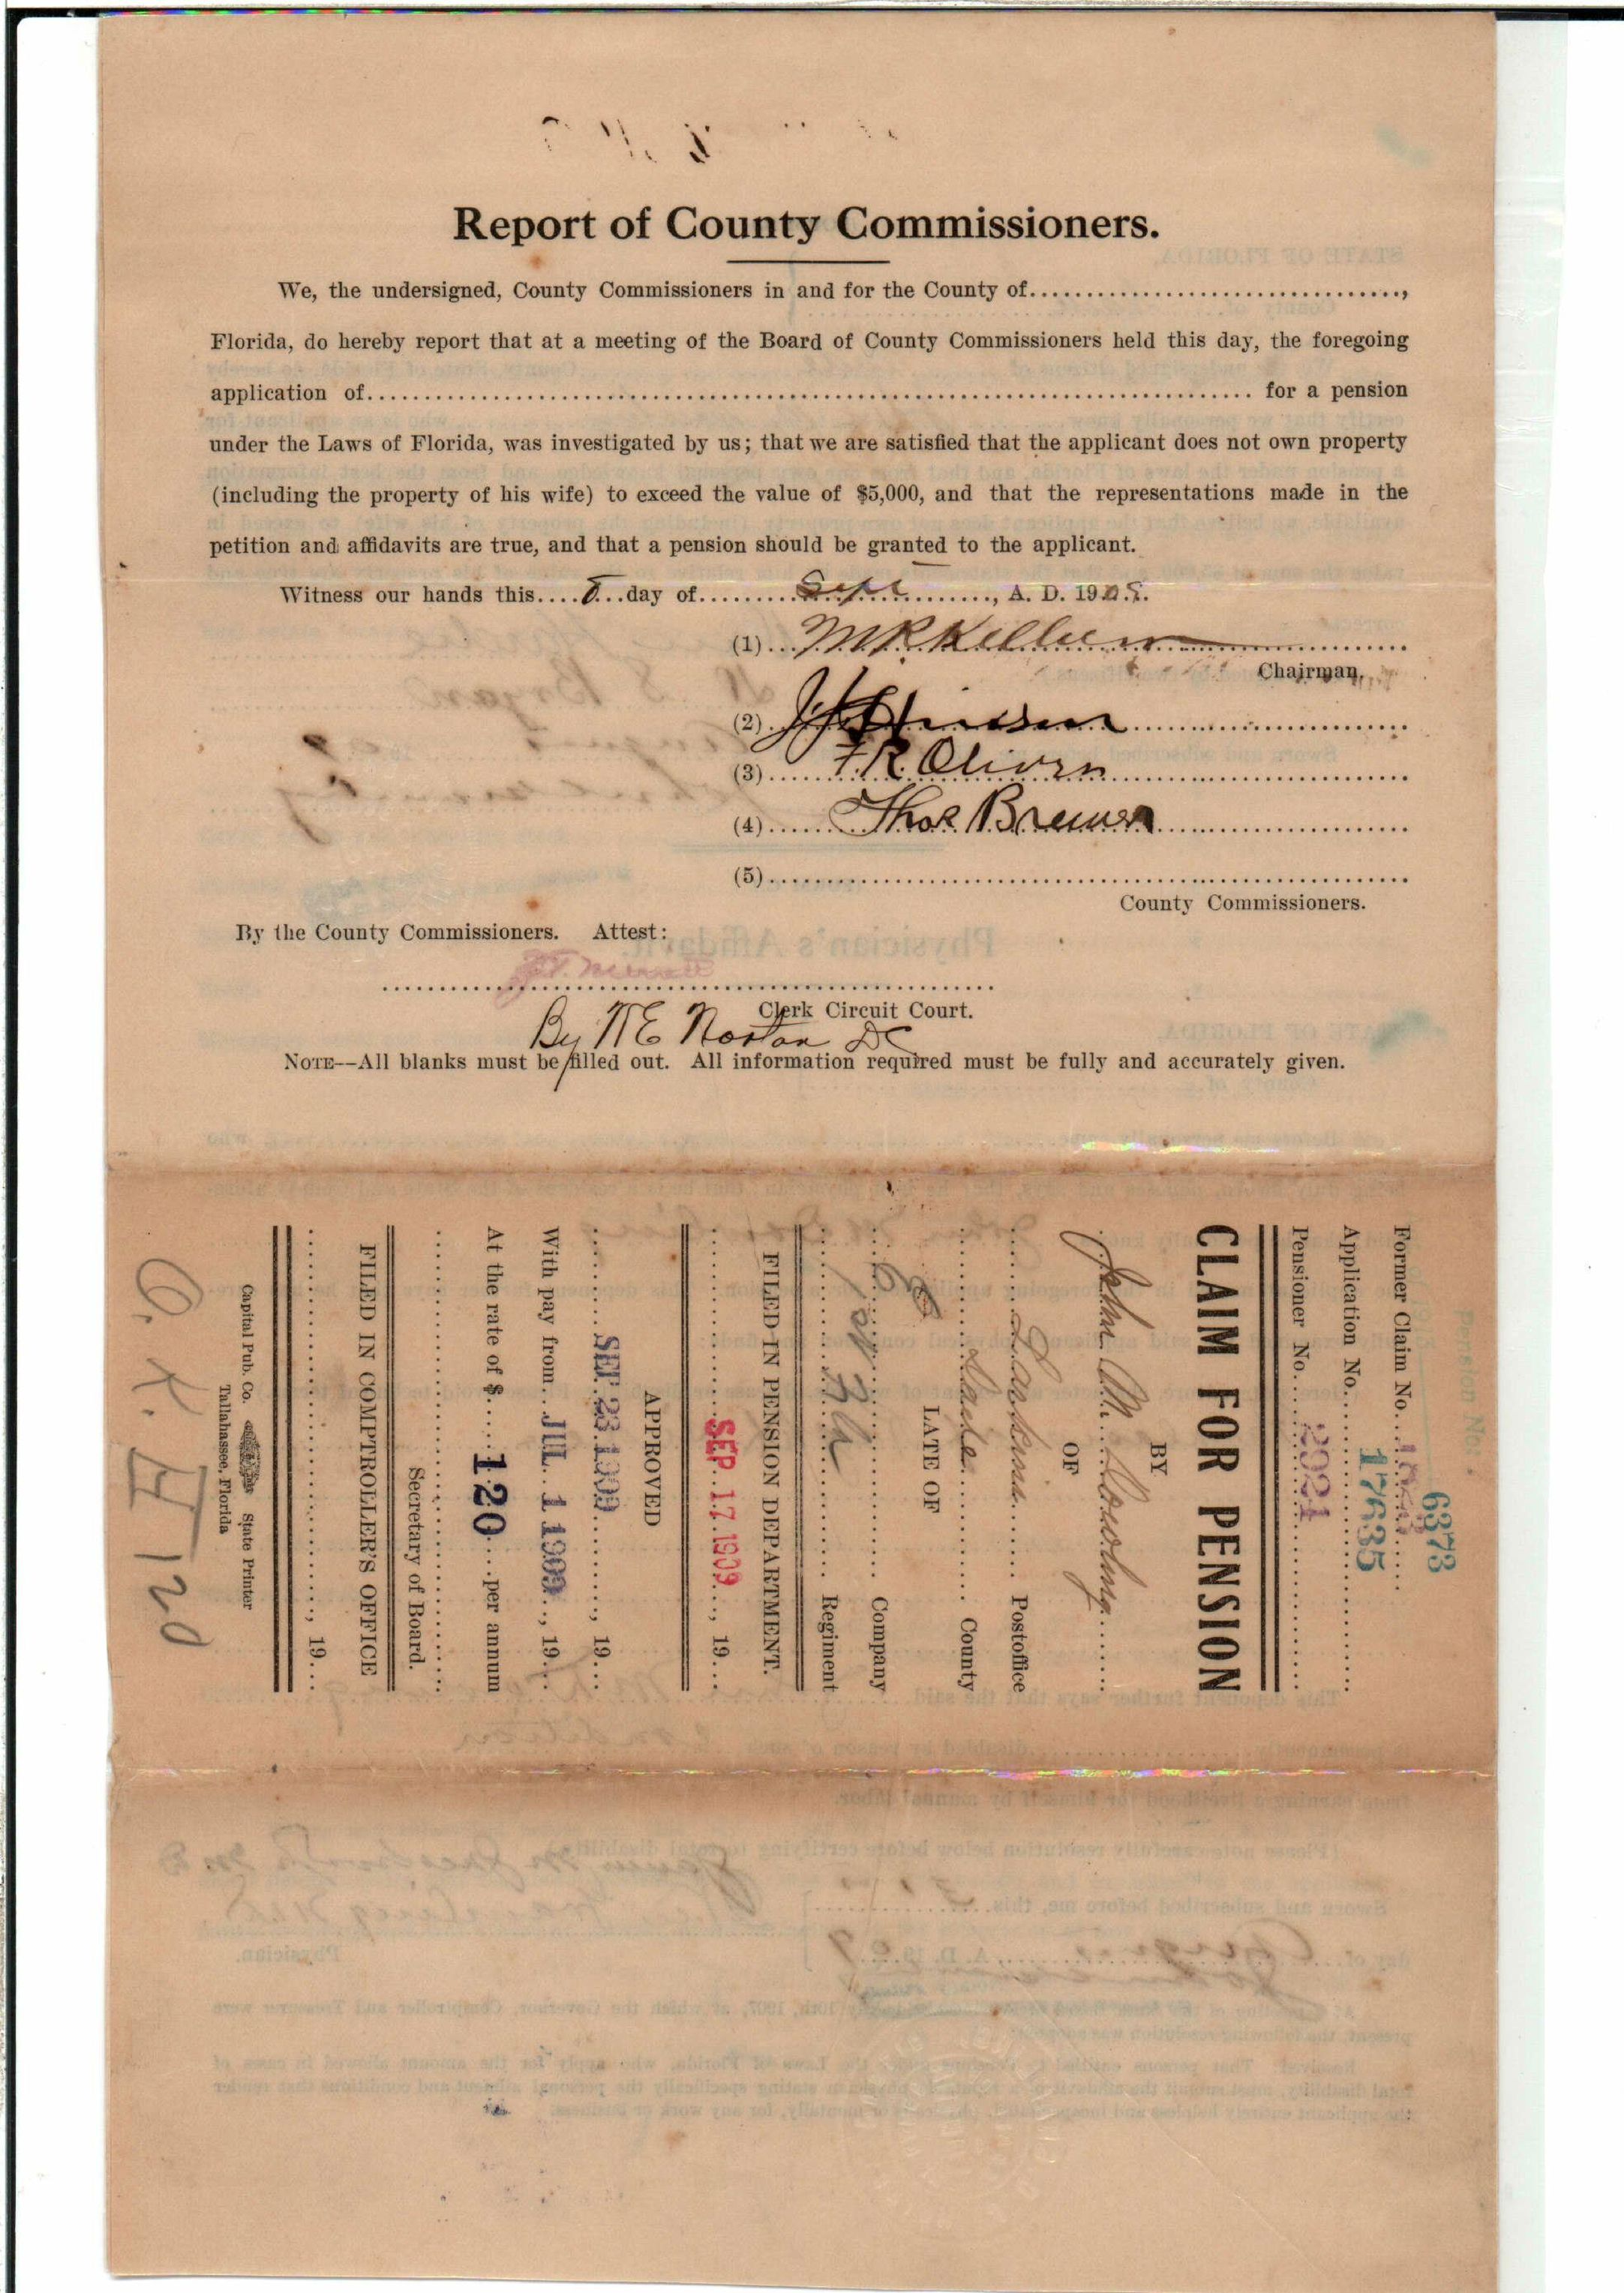 Report of County Commissioners.
We, the undersigned, County Commissioners in and for the County of..................................,
Florida, do hereby report that at a meeting of the Board of County Commissioners held this day, the foregoing
application of.................................................................................. for a pension
under the Laws of Florida, was investigated by us; that we are satisfied that the applicant does not own property
(including the property of his wife) to exceed the value of $5,000, and that the representations made in the
petition and affidavits are true, and that a pension should be granted to the applicant.
Witness our hands this....8...day of........Sept..........., A. D. 190
(1) M R Kellum
Chairman,
(2)
(3) F. R. Oliver
(4) Thos Brewer
(5)
County Commissioners.
By the County Commissioners. Attest:
Clerk Circuit Court.
By N E Norton DC
NOTE—All blanks must be filled out. All information required must be fully and accurately given.
Pension No.
6373
Former Claim No.
Application No. 17635
Pensioner No. 2924
CLAIM FOR PENSION
BY
John M. Dowling
OF
Larkins Postoffice
Dade County
LATE OF
Company
1st Fla Regiment
FILED IN PENSION DEPARTMENT.
SEP 17 1909, 19...
APPROVED
SEP 23 1909, 19...
With pay from JUL 1 1909, 19...
At the rate of $ 120 per annum
Secretary of Board.
FILED IN COMPTROLLER'S OFFICE
, 19...
Capital Pub. Co. State Printer
Tallahassee, Florida
O. K. 120